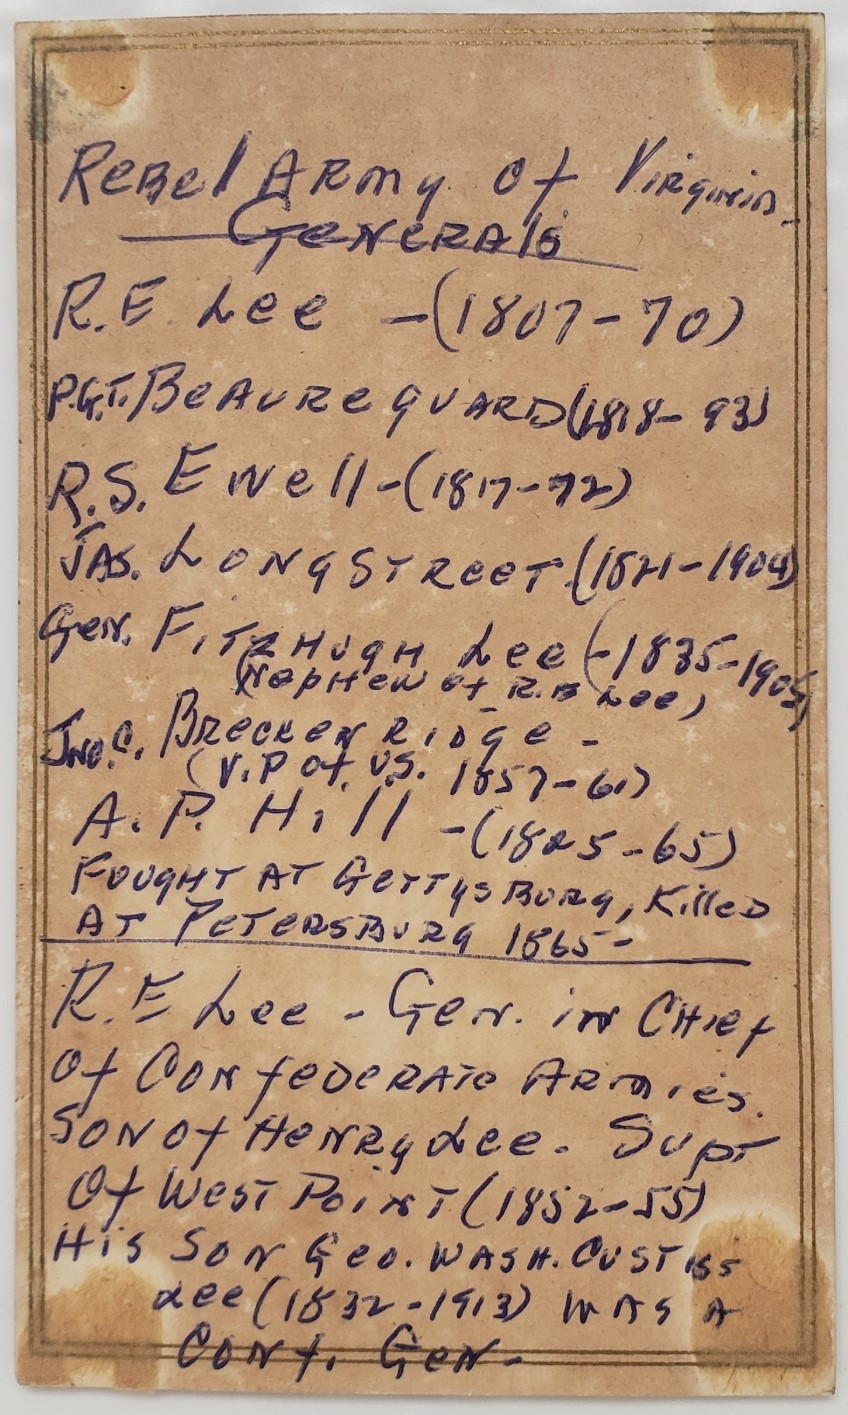 Rebel Army of Virginia -
Generals
R.E. Lee - (1807-70)
P.G.T. Beaureguard (1818-93)
R.S. Ewell - (1817-72)
Jas. Longstreet (1821-1904)
Gen. Fitzhugh Lee (-1835-1905)
(Nephew of R.E. Lee)
Jno. C. Breckenridge -
(V.P of U.S. 1857-61)
A.P. Hill - (1825-65)
Fought at Gettysburg, Killed
at Petersburg 1865 -
R.E Lee - Gen. in Chief
of Confederate Armies.
Son of Henry Lee. Supt
of West Point (1852-55)
His Son Geo. Wash. Custiss
Lee (1832-1913) was a
Conf. Gen -